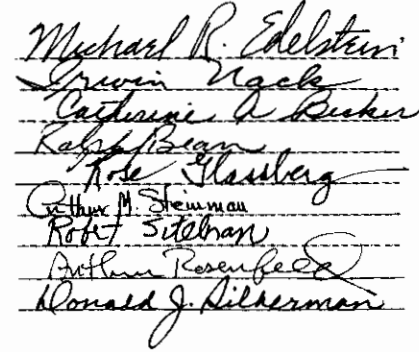 Michael R. Edelstein
Irwin Nack
Catherine A Becker
Ralph Bean
Rose Glassberg
Arthur M. Steinman
Robert Sitelman
Arthur Rosenfeld
Donald J. Silberman